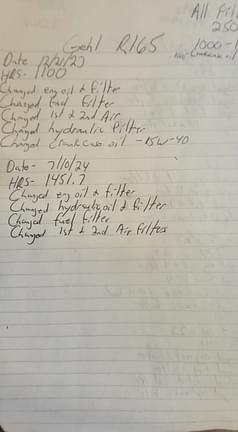 All Fil
250
Gehl R165
1000-
Date 12/21/23
HRS- 1100
Changed eng oil & filter
Changed fuel filter
Changed 1st & 2nd Air
Changed hydraulic filter
Changed Crankcase oil -15W-40
Date- 7/10/24
HRS- 1451.7
Changed eng oil & filter
Changed hydraulic oil & filter
Changed fuel filter
Changed 1st & 2nd Air filters